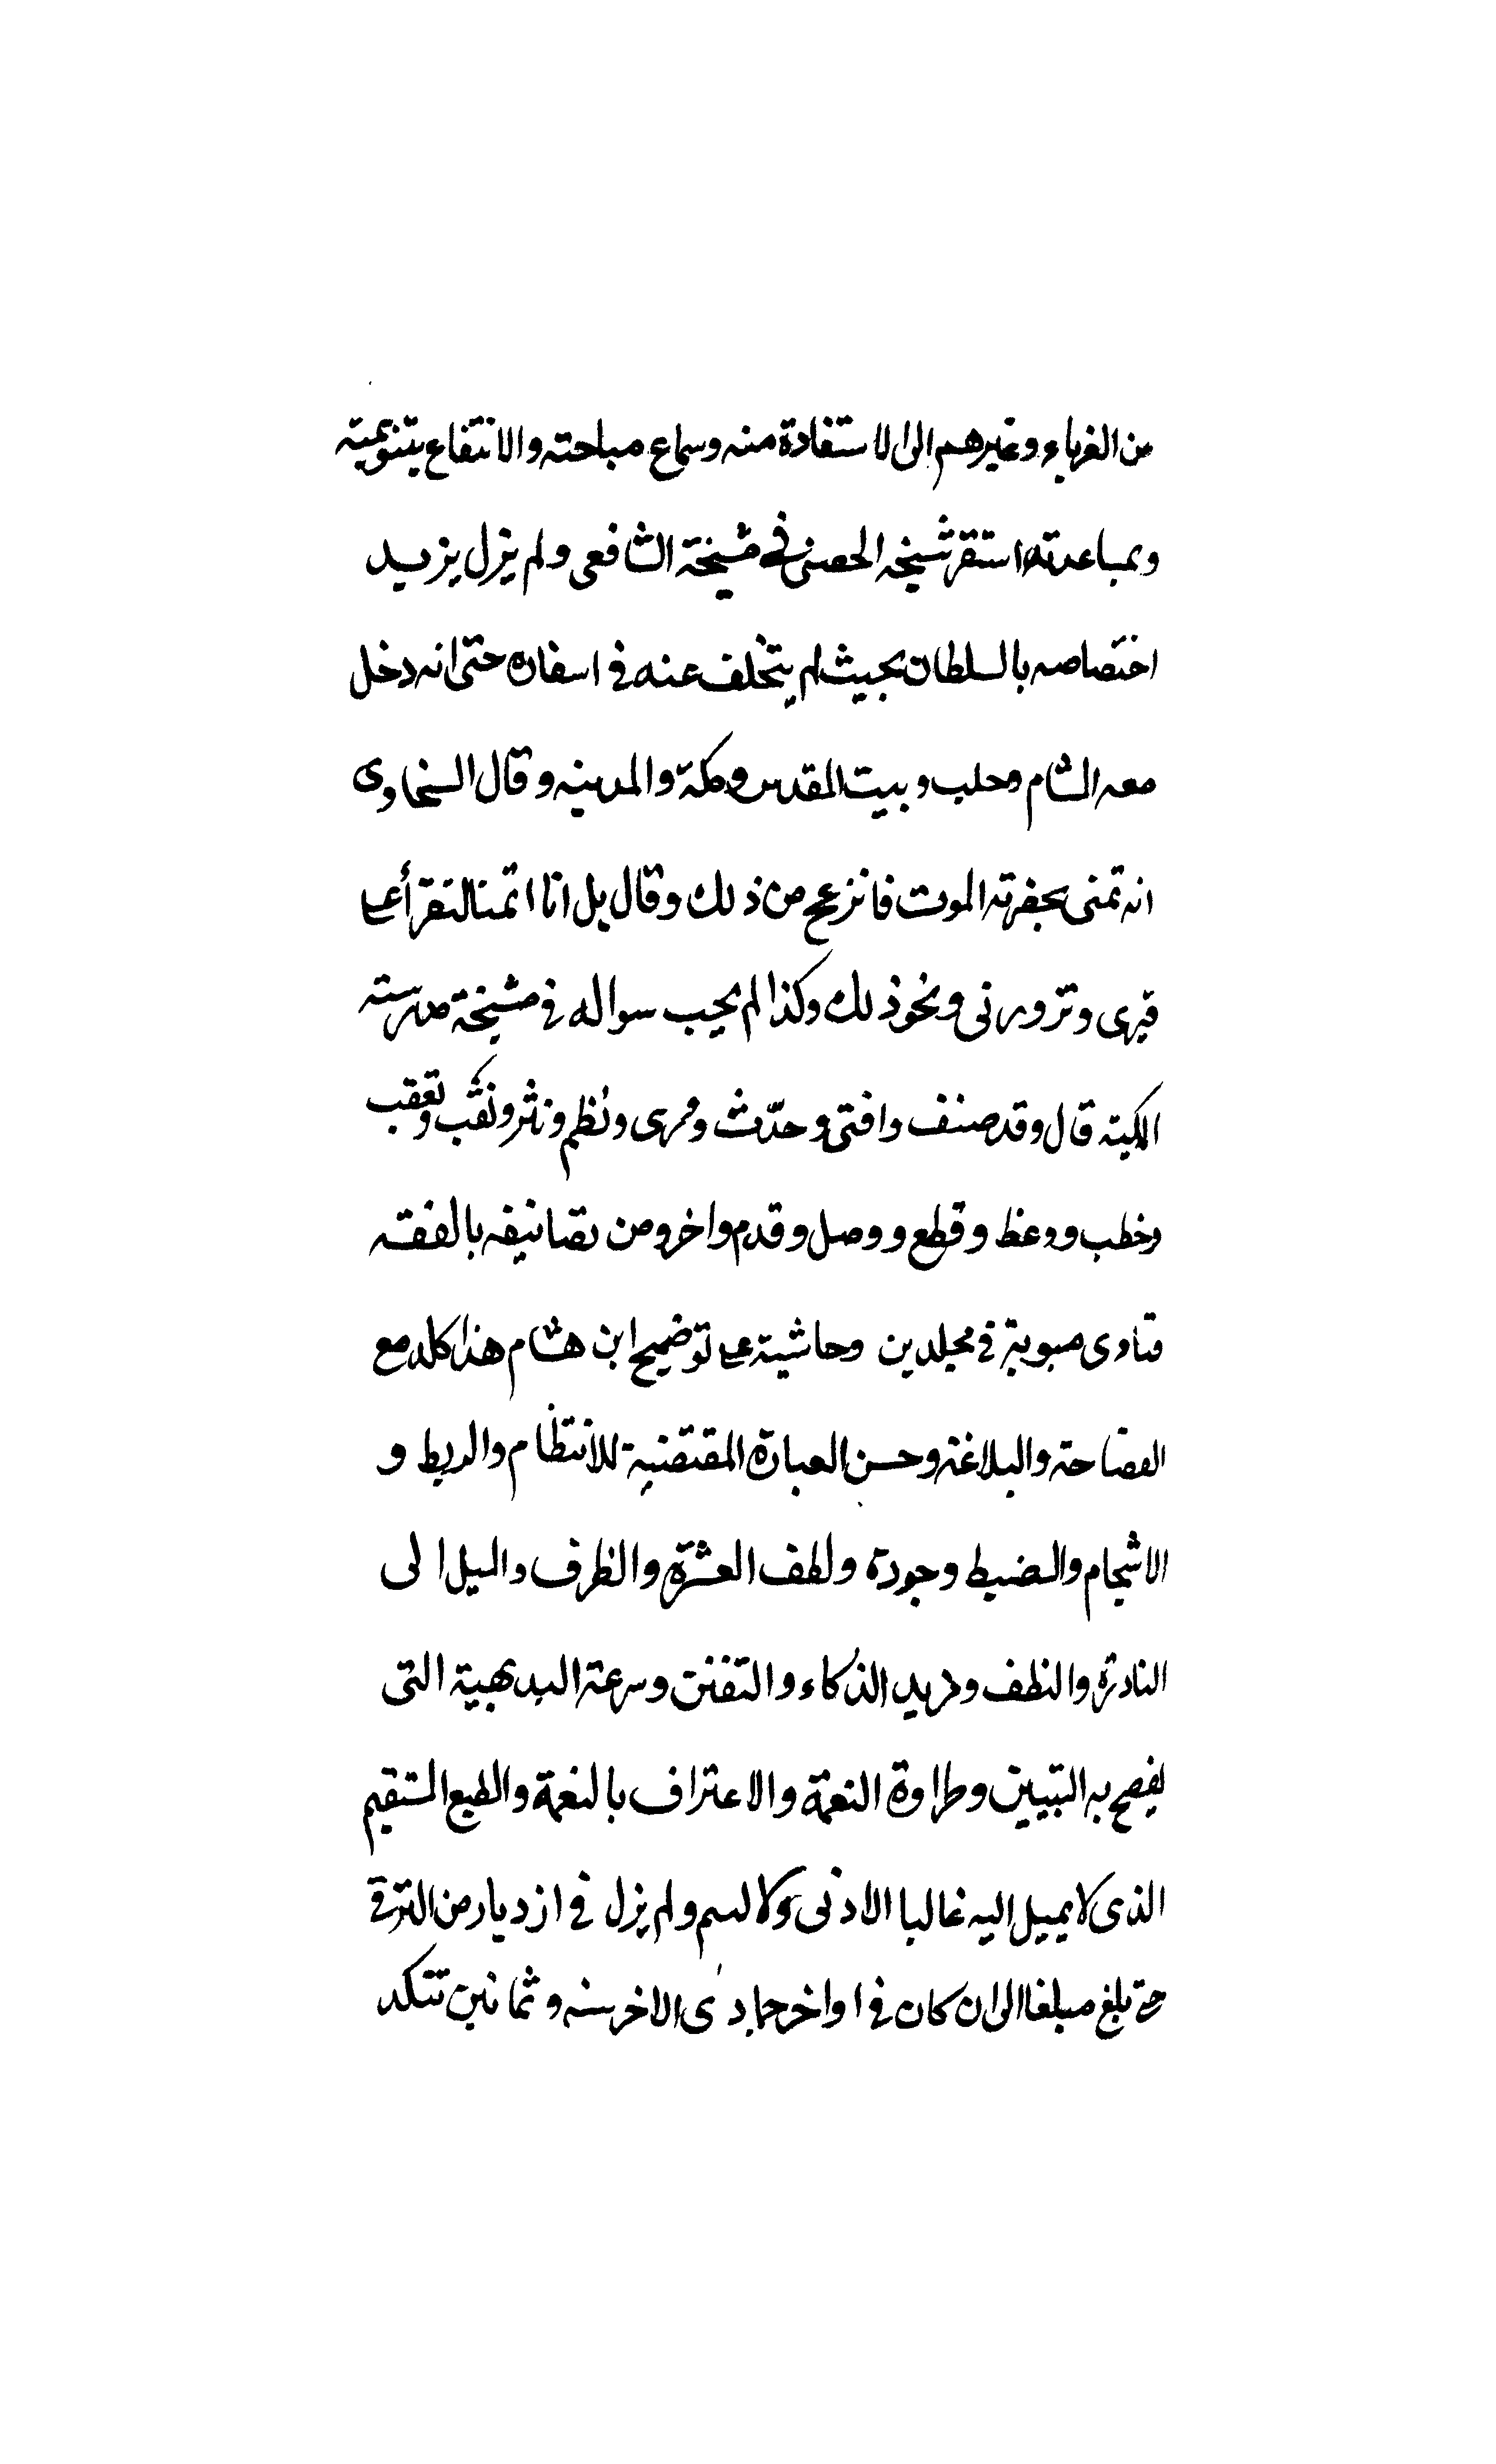 من الغرباء وغيرهم الى الاستفادة منه وسماع مباحثه والانتفاع بتنويميته
وبمباعدته استقر شيخه الحصنى في مشيخة الشافعى ولم يزل يزيد
اختصاصه بالسلطان بحيث لم يتخلف عنه في اسفاره حتى انه دخل
معه الشام وحلب وبيت المقدس ومكة والمدينه وقال السخاوى
انه تمنى بحضرته الموت فانزعج من ذلك وقال بل انا اتمنا لتقرأ على
قبرى وتزورنى ونحو ذلك وكذا لم يجب سواله في مشيخة مدرسته
المكيته قال وقد صنف وافتى وحدّث وروى ونظم ونثر ونقب وتعقب
وخطب ووعظ وقطع ووصل وقدم واخر ومن تصانيفه بالفقه
فتاوى مبوبة في مجلدين وحاشية على توضيح ابن هشام هذا كله مع
الفصاحة والبلاغة وحسن العبارة المقتضية للانتظام والربط و
الانسجام والضبط وجودة ولطف العشرة والظرف والميل الى
النادرة والنظف ومزيد الذكاء والتفنن وسرعة البديهية التى
يفصح به التبيين وطراوة النعمة والاعتراف بالنعمة والطبع المستقيم
الذى لا يميل اليه غالبا الادنى ولا لسم ولم يزل في ازدياد من الترقي
حتى بلغ مبلغا الى ان كان في اواخر جمادى الاخر سنه وثمانين تنكد